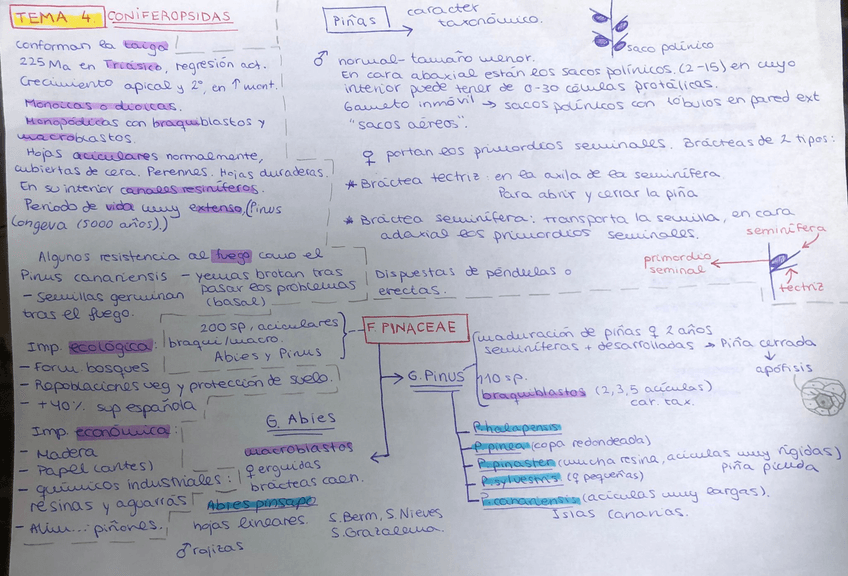 TEMA 4. CONIFEROPSIDAS
conforman la taiga
225 Ma en Triásico, regresión act.
Crecimiento apical y 2º, en ↑ mont.
Monoicas o dioicas.
Monopódicas con braquiblastos y
macroblastos.
Hojas aciculares normalmente,
cubiertas de cera. Perennes. Hojas duraderas.
En su interior canales resiníferos.
Periodo de vida muy extenso (Pinus
Longeva (5000 años).)
Algunos resistencia al fuego como el
Pinus canariensis - yemas brotan tras
pasar los problemas
(basal)
- Semillas germinan
tras el fuego.
Imp. ecológica:
- Form. bosques
- Repoblaciones veg y protección de suelo.
- +40% sup española
Imp. económica:
- Madera
- Papel (antes)
- químicos industriales:
resinas y aguarrás
- Alim...: piñones.
Piñas → caracter
taxonómico.
saco polínico
♂ normal- tamaño menor.
En cara abaxial están los sacos polínicos. (2-15) en cuyo
interior puede tener de 0-30 células protálicas.
Gameto inmóvil → sacos polínicos con lóbulos en pared ext
"sacos aéreos".
♀ portan los primordios seminales. Brácteas de 2 tipos:
* Bráctea tectriz: en la axila de la seminífera
Para abrir y cerrar la piña
* Bráctea seminífera: transporta la semilla, en cara
adaxial los primordios seminales.
Dispuestas de péndulas o
erectas.
seminífera
primordio
seminal
tectriz
F. PINACEAE
200 sp, aciculares
braqui/macro.
Abies y Pinus
G. Pinus
maduración de piñas ♀ 2 años
seminíferas + desarrolladas → Piña cerrada
↓
apófisis
110 sp.
braquiblastos (2,3,5 acículas)
car. tax.
P. halapensis
P. pinea (copa redondeada)
P. pinaster (mucha resina, acículas muy rígidas)
piña picuda
P. sylvestris (♀ pequeñas)
P. canariensis (acículas muy largas).
Islas canarias.
G. Abies
macroblastos
♀ erguidas
brácteas caen.
Abies pinsapo
hojas lineares.
♂ rojizas
S. Berm, S. Nieves
S. Grazalema.